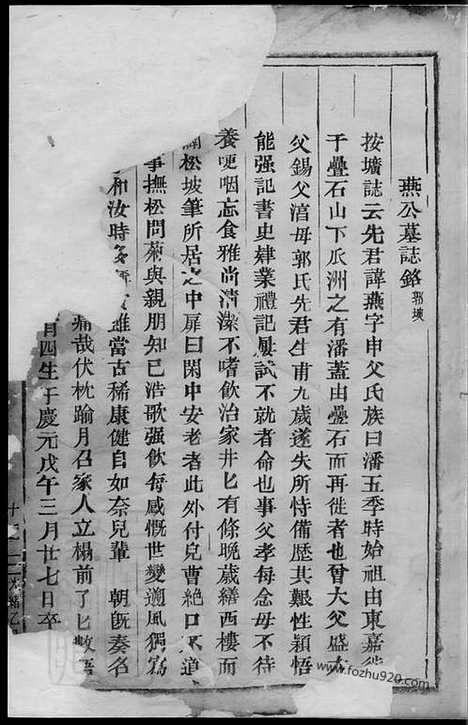 燕公墓誌銘郭埙
按壙誌云先君諱燕字申父氏族曰潘五季時始祖由東嘉徙
于疊石山下瓜洲之有潘蓋由疊石而再徙者也曾大父盛大
父錫父涪母郭氏先君生甫九歲遂失所恃備歷其艱性穎悟
能强記書史肄業禮記屢試不就者命也事父孝每念母不待
養哽咽忘食雅尚清潔不嗜飲治家井匕有條晚歲繕西樓而
松坡筆所居之中扉曰閑中安老者此外付兒曹絶口不道
事撫松問菊與親朋知已浩歌强飲每感慨世變遡風獨寫
和汝時 雖當古稀康健自如奈兒輩 朝旣奏名
痛哉伏枕踰月召家人立榻前了匕數語
四生于慶元戊午三月廿七日卒
www.fozhu920.com